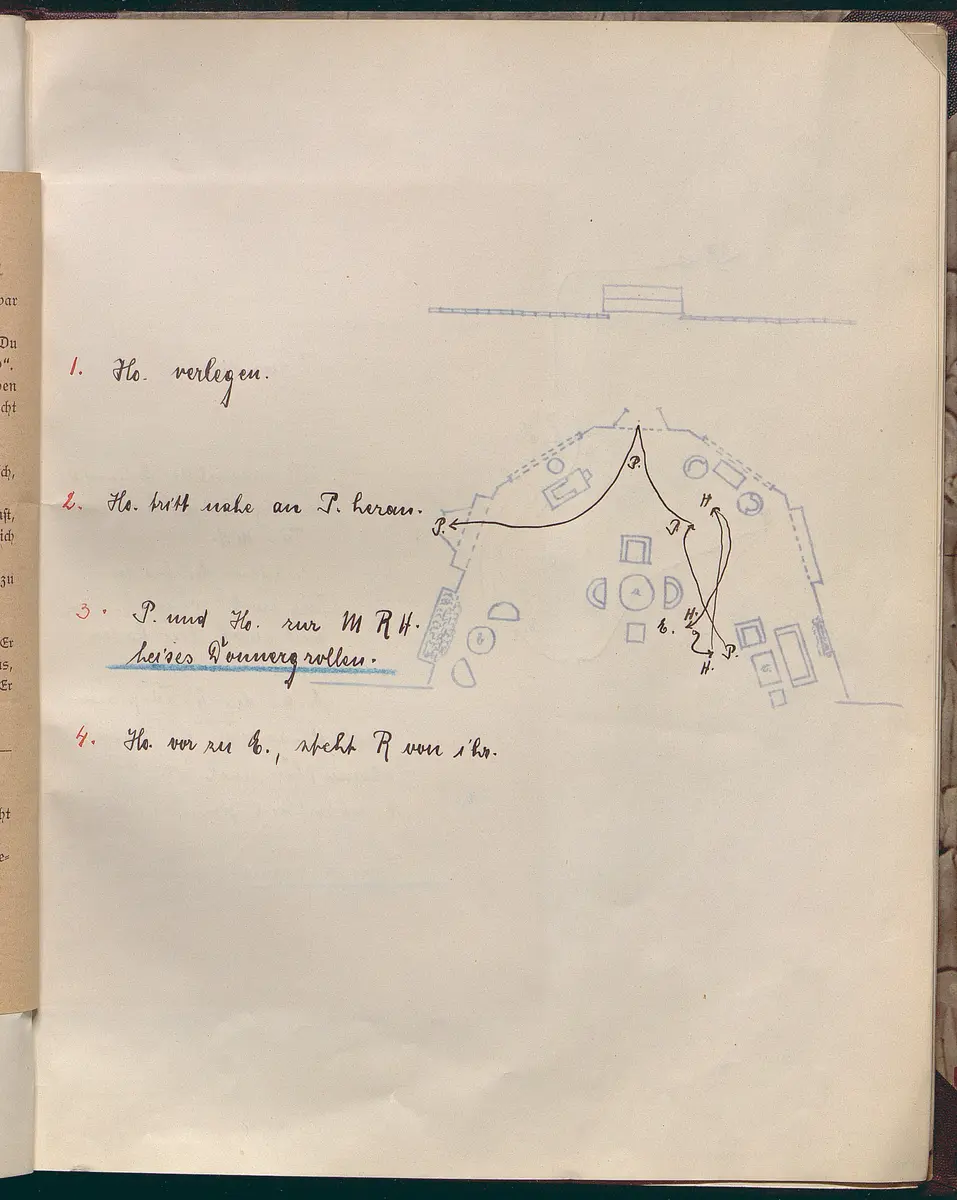 1. Ho. verlegen.
2. Ho. tritt nahe an P. heran.
3. P. und Ho. zur M R H.
leises Donnergrollen.
4. Ho. vor zu E., steht R von ihr.
P.
P.
P.
H
H.
E.
H.
P.
ar
Du
“.
en
cht
ch,
ich
zu
Er
s,
Er
ht
e=